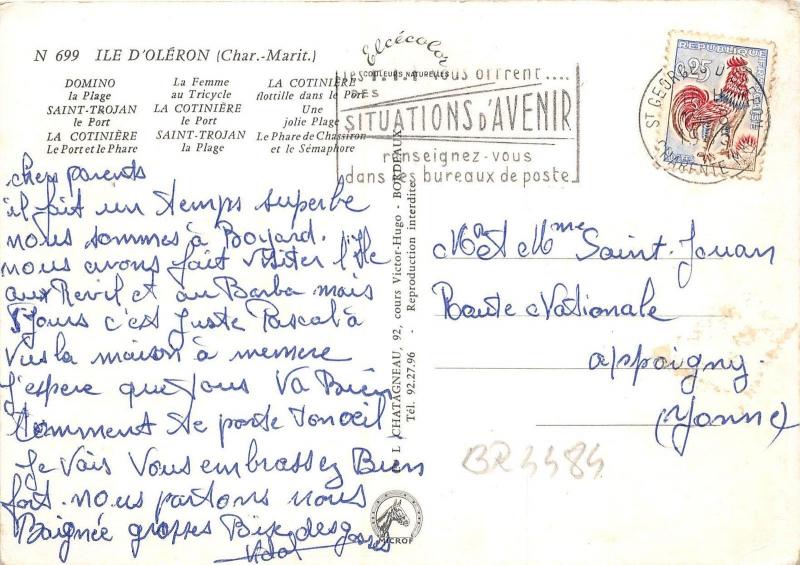 N 699 ILE D'OLÉRON (Char.-Marit.)
DOMINO
la Plage
SAINT-TROJAN
le Port
LA COTINIÈRE
Le Port et le Phare
La Femme
au Tricycle
LA COTINIÈRE
le Port
SAINT-TROJAN
la Plage
LA COTINIÈRE
flottille dans le Port
Une
jolie Plage
Le Phare de Chassiron
et le Sémaphore
Elcécolor
COULEURS NATURELLES
vous offrent....
DES
SITUATIONS D'AVENIR
renseignez-vous
dans les bureaux de poste
REPUBLIQUE
0,25
ST GEORGES D'OLERON
CHARENTE MME
chers parents
il fait un temps superbe
nous sommes à Boyard.
nous avons fait visiter l'île
aux Revil et au Barba mais
5 jours c'est juste Pascal à
vus la maison à memere
J'espere que tous va Bien
comment te porte ton oeil
Je vais vous embrassez Bien
fort. nous partons nous
Baignée grosses Bix des gosses
CHATAGNEAU, 92, cours Victor-Hugo - BORDEAUX
Tél. 92.27.96 - Reproduction interdite
MICROF
Mr et Mme Saint-Jouan
Route Nationale
appoigny.
(Yonne)
BR4484